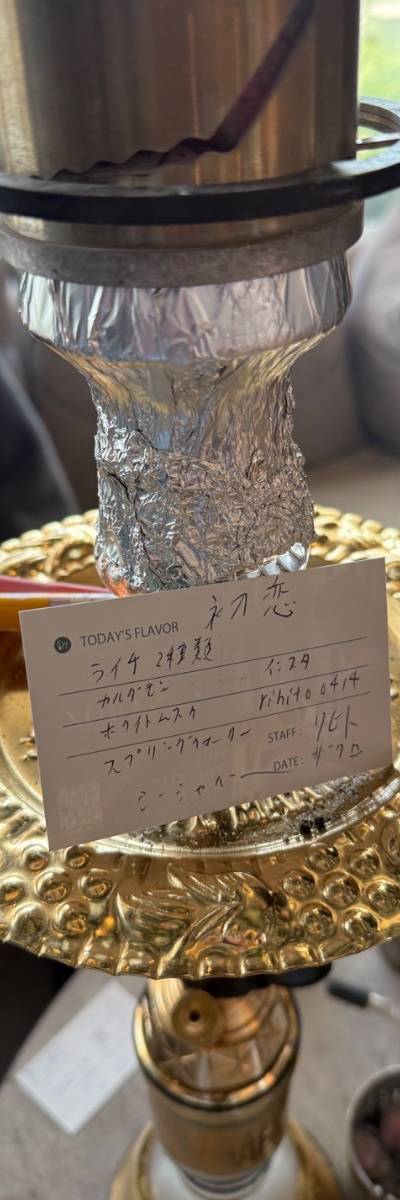 TODAY'S FLAVOR 初恋
ライチ 2種類
カルダモン インスタ
ホワイトムスク rihito 0414
スプリングウォーター STAFF: リヒト
シーシャベー DATE: ザクロ